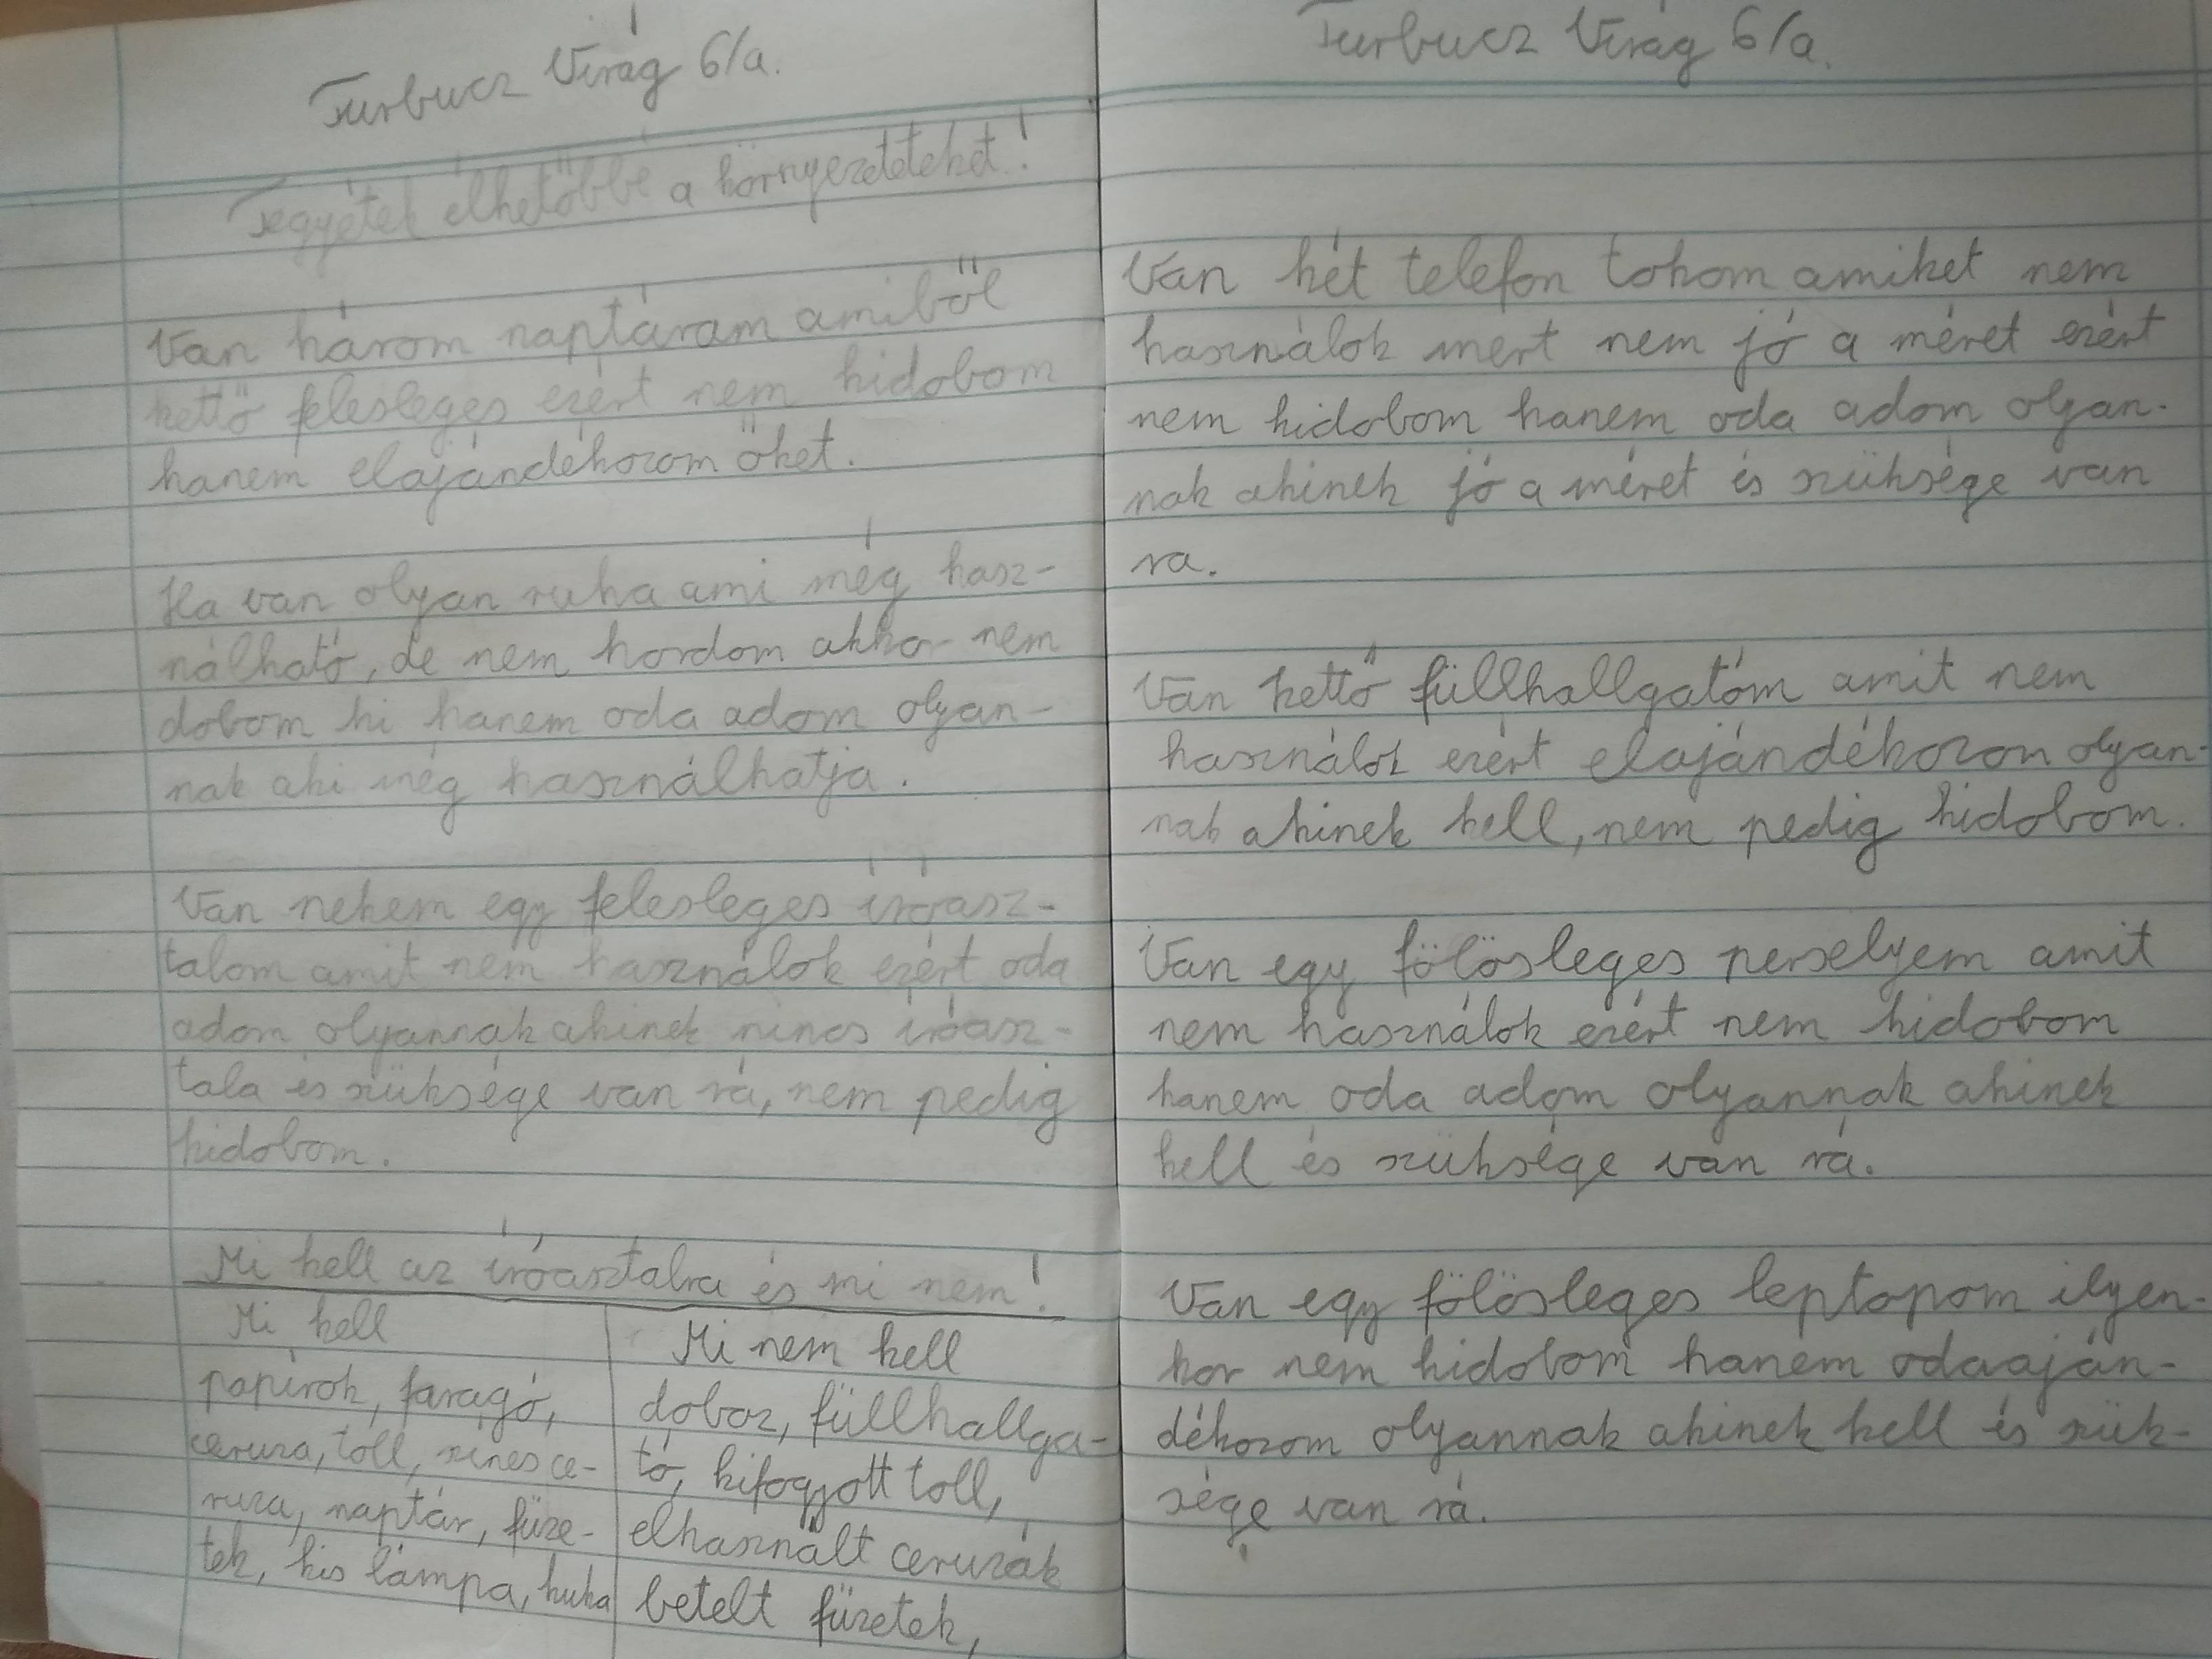 Turbucz Virág 6/a.
Tegyétek élhetőbbé a környezeteteket!
Van három naptáram amiből
kettő felesleges ezért nem kidobom
hanem elajándékozom őket.
Ha van olyan ruha ami még hasz-
nálható, de nem hordom akkor nem
dobom ki hanem oda adom olyan-
nak aki még használhatja.
Van nekem egy felesleges íróasz-
talom amit nem használok ezért oda
adom olyannak akinek nincs íróasz-
tala és szüksége van rá, nem pedig
kidobom.
Mi kell az íróasztalra és mi nem!
Mi kell
papírok, faragó,
ceruza, toll, színes ce-
ruza, naptár, füze-
tek, kis lámpa, kuka
Mi nem kell
doboz, füllhallga-
tó, kifogyott toll,
elhasznált ceruzák
betelt füzetek,
Turbucz Virág 6/a.
Van két telefon tokom amiket nem
használok mert nem jó a méret ezért
nem kidobom hanem oda adom olyan-
nak akinek jó a méret és szüksége van
ra.
Van kettő füllhallgatóm amit nem
használok ezért elajándékozom olyan-
nak akinek kell, nem pedig kidobom.
Van egy fölösleges perselyem amit
nem használok ezért nem kidobom
hanem oda adom olyannak akinek
kell és szüksége van rá.
Van egy fölösleges leptopom ilyen-
kor nem kidobom hanem odaaján-
dékozom olyannak akinek kell és szük-
sége van rá.